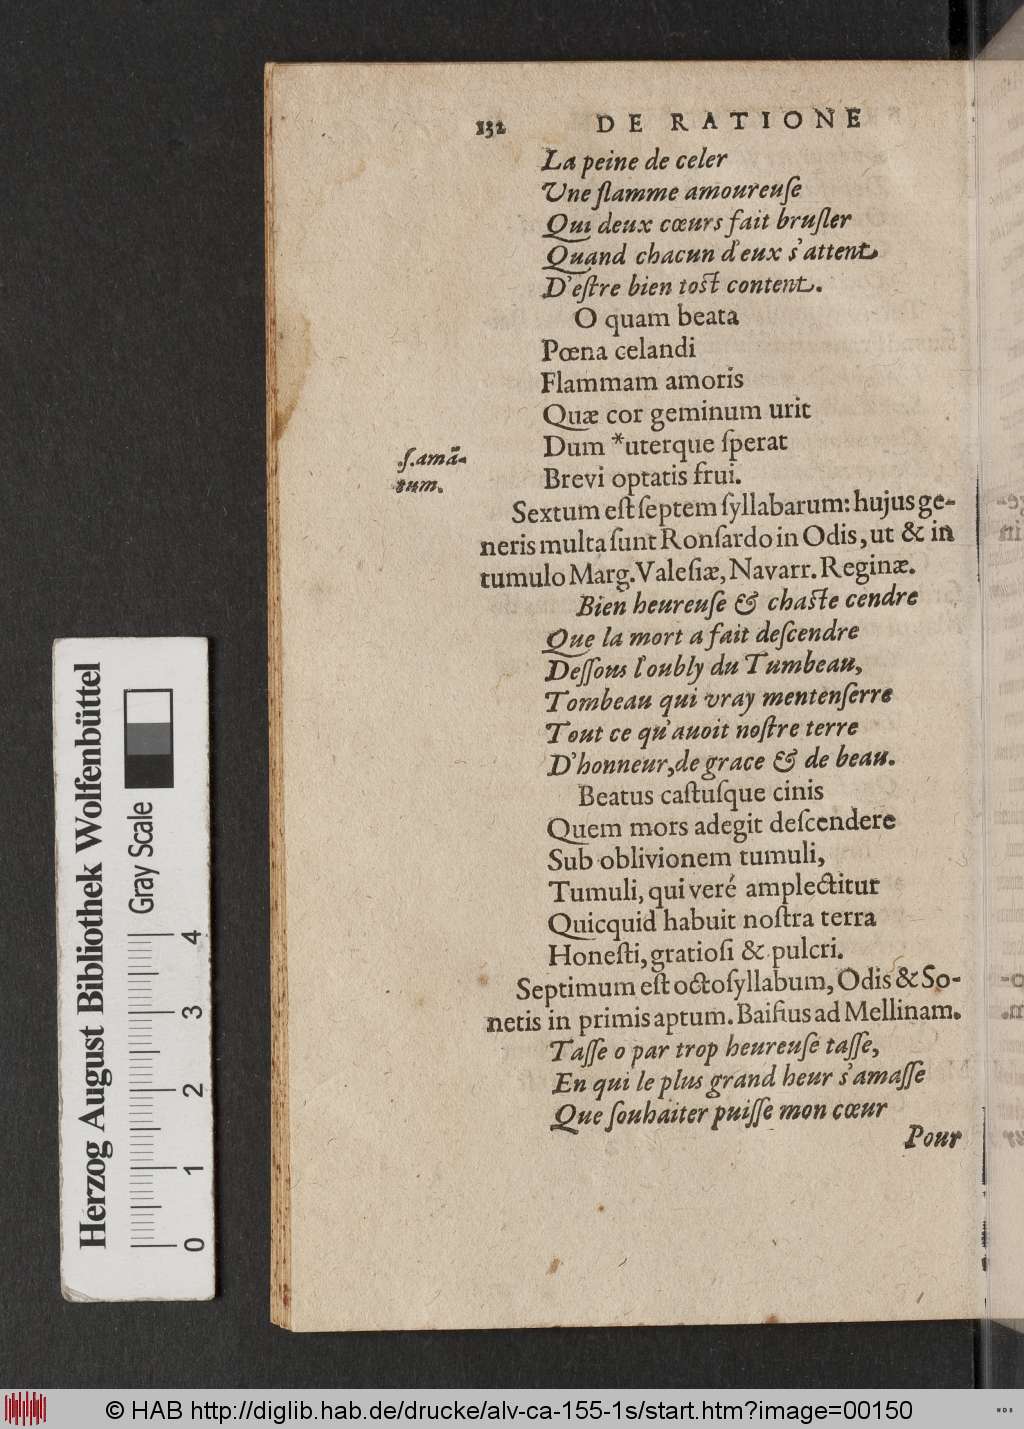 132 DE RATIONE
La peine de celer
Vne flamme amoureuſe
Qui deux cœurs fait bruſler
Quand chacun d'eux s'attent
D'eſtre bien toſt content.
O quam beata
Pœna celandi
Flammam amoris
Quæ cor geminum urit
Dum *uterque ſperat
.ſ.amā-
tum.
Brevi optatis frui.
Sextum eſt ſeptem ſyllabarum: hujus ge-
neris multa ſunt Ronſardo in Odis, ut & in
tumulo Marg. Valeſiæ, Navarr. Reginæ.
Bien heureuſe & chaſte cendre
Que la mort a fait deſcendre
Deſſous l'oubly du Tumbeau,
Tombeau qui vray mentenſerre
Tout ce qu'auoit noſtre terre
D'honneur, de grace & de beau.
Beatus caſtuſque cinis
Quem mors adegit deſcendere
Sub oblivionem tumuli,
Tumuli, qui veré amplectitur
Quicquid habuit noſtra terra
Honeſti, gratioſi & pulcri.
Septimum eſt octoſyllabum, Odis & So-
netis in primis aptum. Baiſius ad Mellinam.
Taſſe o par trop heureuſe taſſe,
En qui le plus grand heur s'amaſſe
Que ſouhaiter puiſſe mon cœur
Pour
Herzog August Bibliothek Wolfenbüttel
Gray Scale
0 1 2 3 4
© HAB http://diglib.hab.de/drucke/alv-ca-155-1s/start.htm?image=00150